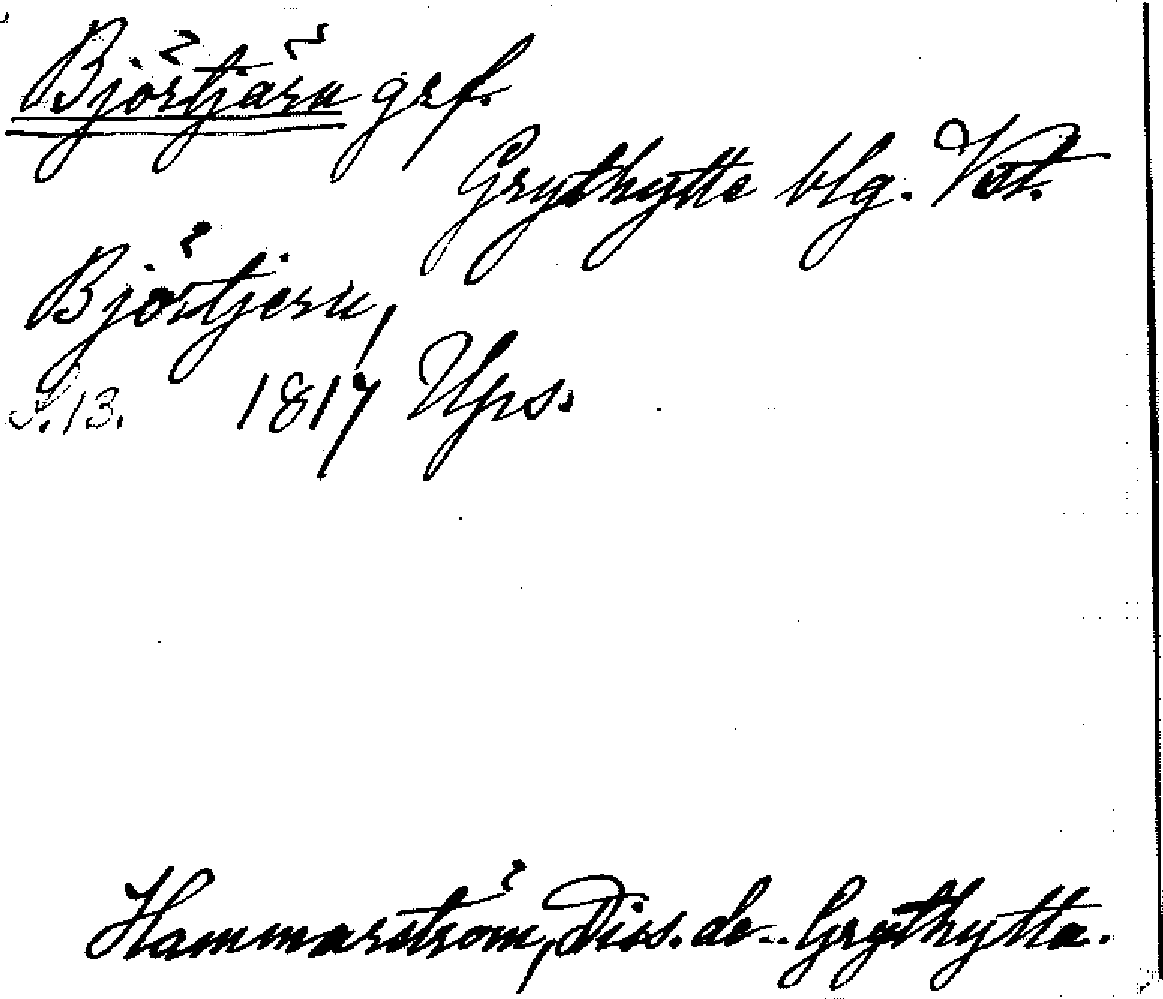 Björtjärn grf.
Grythytte blg. Vst.
Björtjern,
S. 13. 1817 Ups.
Hammarström, Diss. de.. Grythytta.